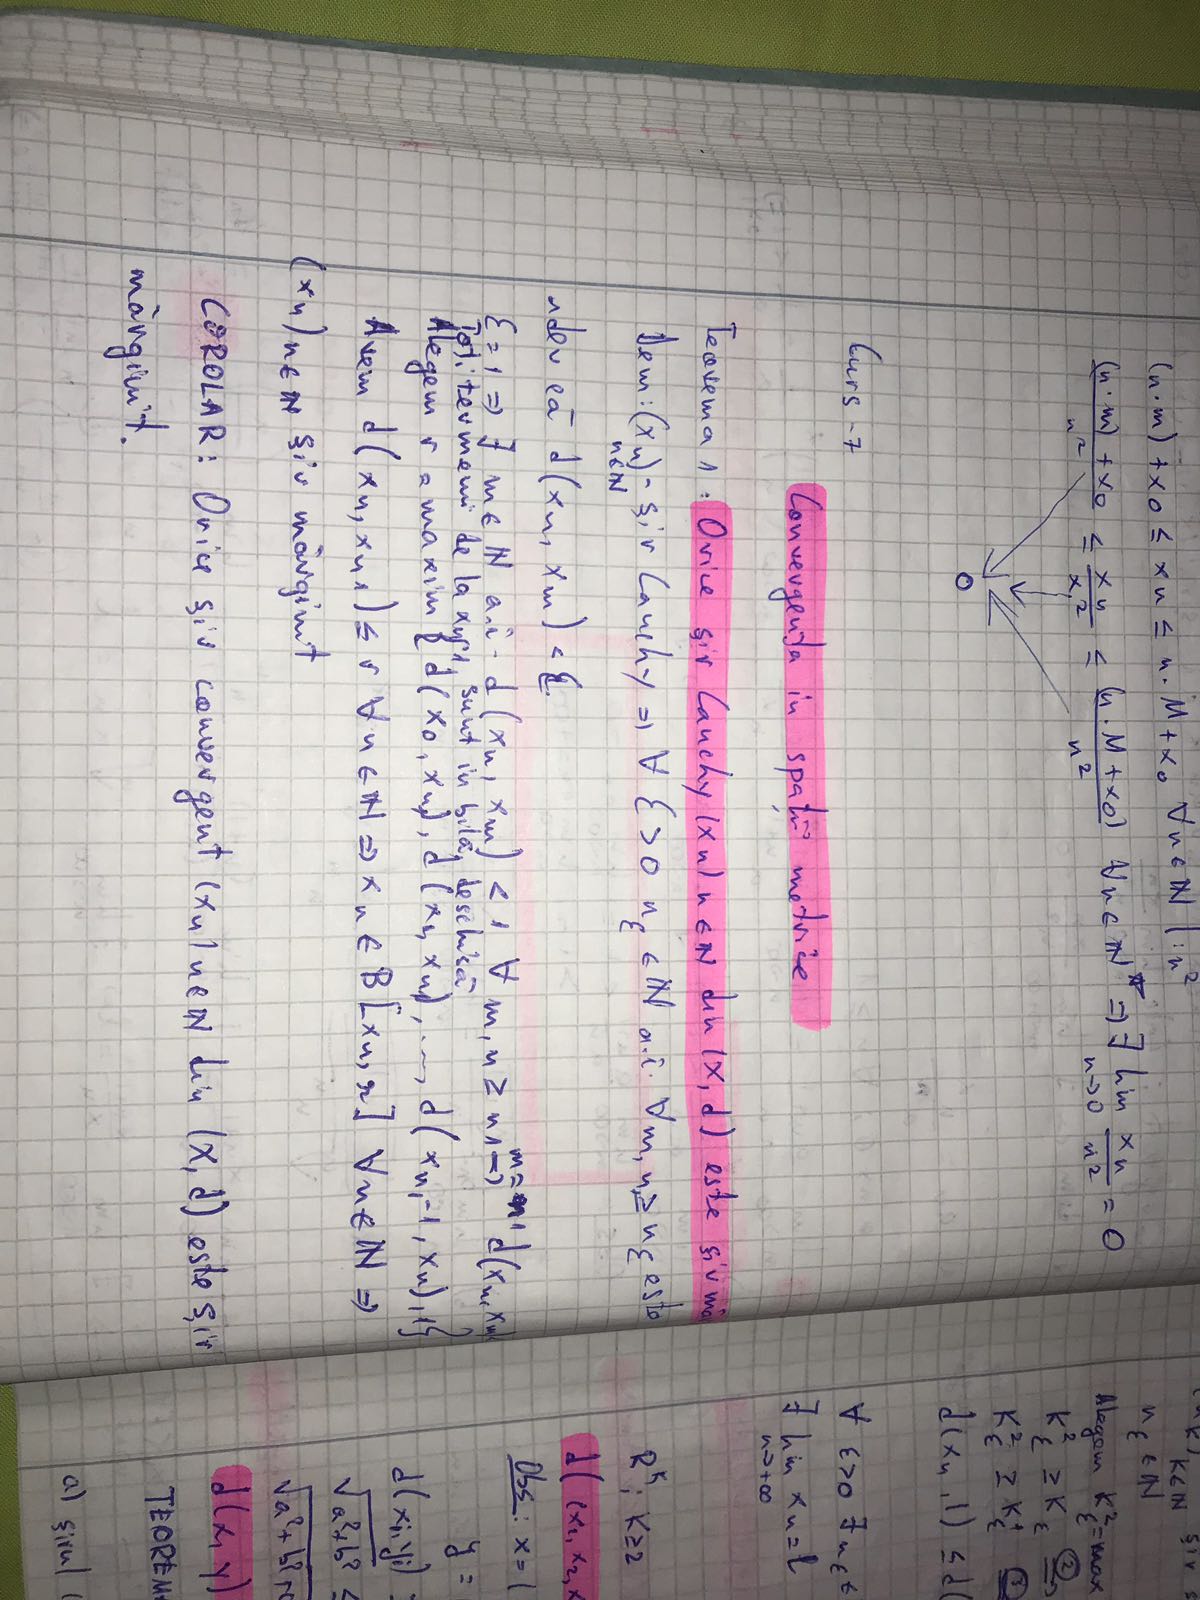 (n·m) + x0 ≤ xn ≤ n·M + x0 ∀n∈ℕ | :n²
(n·m) + x0 / n² ≤ xn / x,2 ≤ (n·M + x0) / n² ∀n∈ℕ* => ∃ lim n→0 xn / n² = 0
0
Curs -7
Convergența in spații metrice
Teorema 1 : Orice șir Cauchy (xn) n∈ℕ din (X, d) este șir mă
Dem : (xn) n∈ℕ - șir Cauchy => ∀ ε > 0 nε ∈ ℕ a.î. ∀m, n ≥ nε este
adev că d(xn, xm) < ε.
ε = 1 => ∃ m∈ℕ a.î. d(xn, xm) < 1 ∀ m, n ≥ n1 → m = n1 d(xn, xn1
Toți termenii de la xn1, sunt in bilă deschisă
Alegem r = maxim { d(x0, xn), d(x1, xn), ..., d(xn1-1, xn), 1}
Avem d(xn, xn1) ≤ r ∀n∈ℕ => xn ∈ B[xn, r] ∀n∈ℕ =>
(xn) n∈ℕ șir mărginit
COROLAR : Orice șir convergent (xn) n∈ℕ din (X, d) este șir
mărginit.
nε ∈ ℕ
Alegem Kε² = max
Kε² ≥ Kε ②
Kε² ≥ Kε¹ ③
d(xn, l) ≤ d(
∀ ε>0 ∃ nε ∈
∃ lim n→+∞ xn = l
ℝᵏ ; K≥2
d((x1, x2, x
Obs : x = (
y =
d(xi, yi)
√a²+b² ≤
√a²+b²+c
d(x, y)
TEOREM
a) șirul (